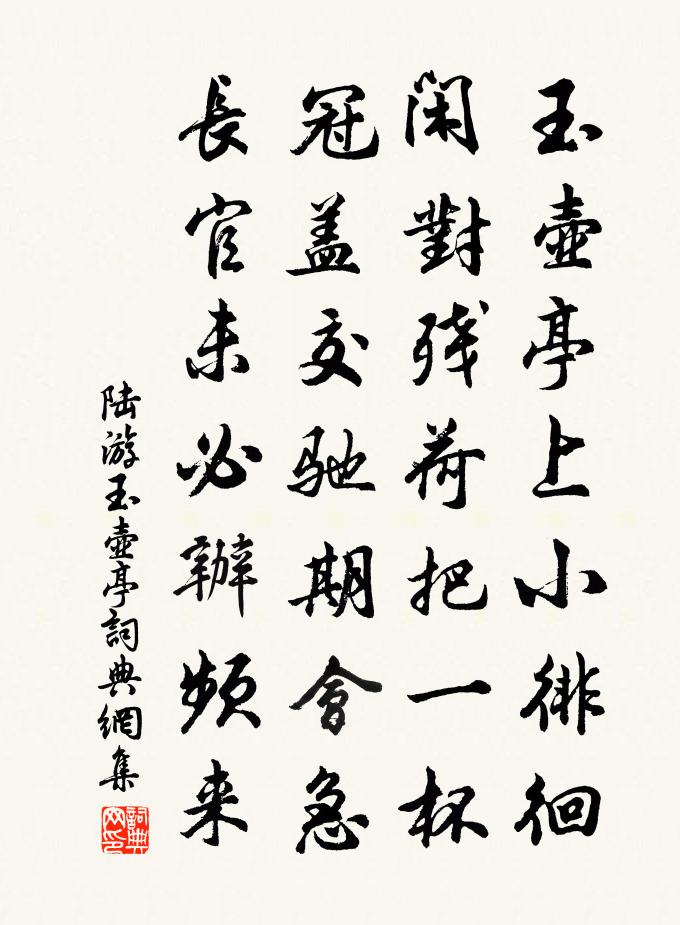 玉壺亭上小徘徊
閑對残荷把一杯
冠盖交馳期會急
長官未必辦頻来
陆游玉壺亭詞典網集
詞典网印